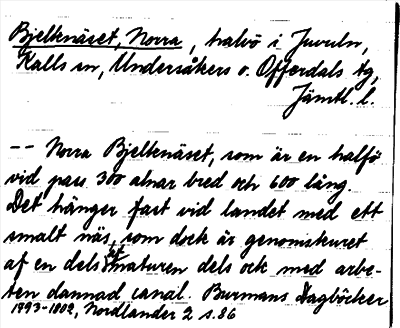 Bjelknäset, Norra, halvö i Juveln,
Kalls sn, Undersåkers o. Offerdals tg,
Jämtl. l.
-- Norra Bjelknäset, som är en halfö
vid pass 300 alnar bred och 600 lång.
Det hänger fast vid landet med ett
smalt näs, som dock är genomskuret
af en dels af naturen dels ock med arbe-
ten dannad canal. Burmans Dagböcker
1793-1802, Nordlander 2 s. 86